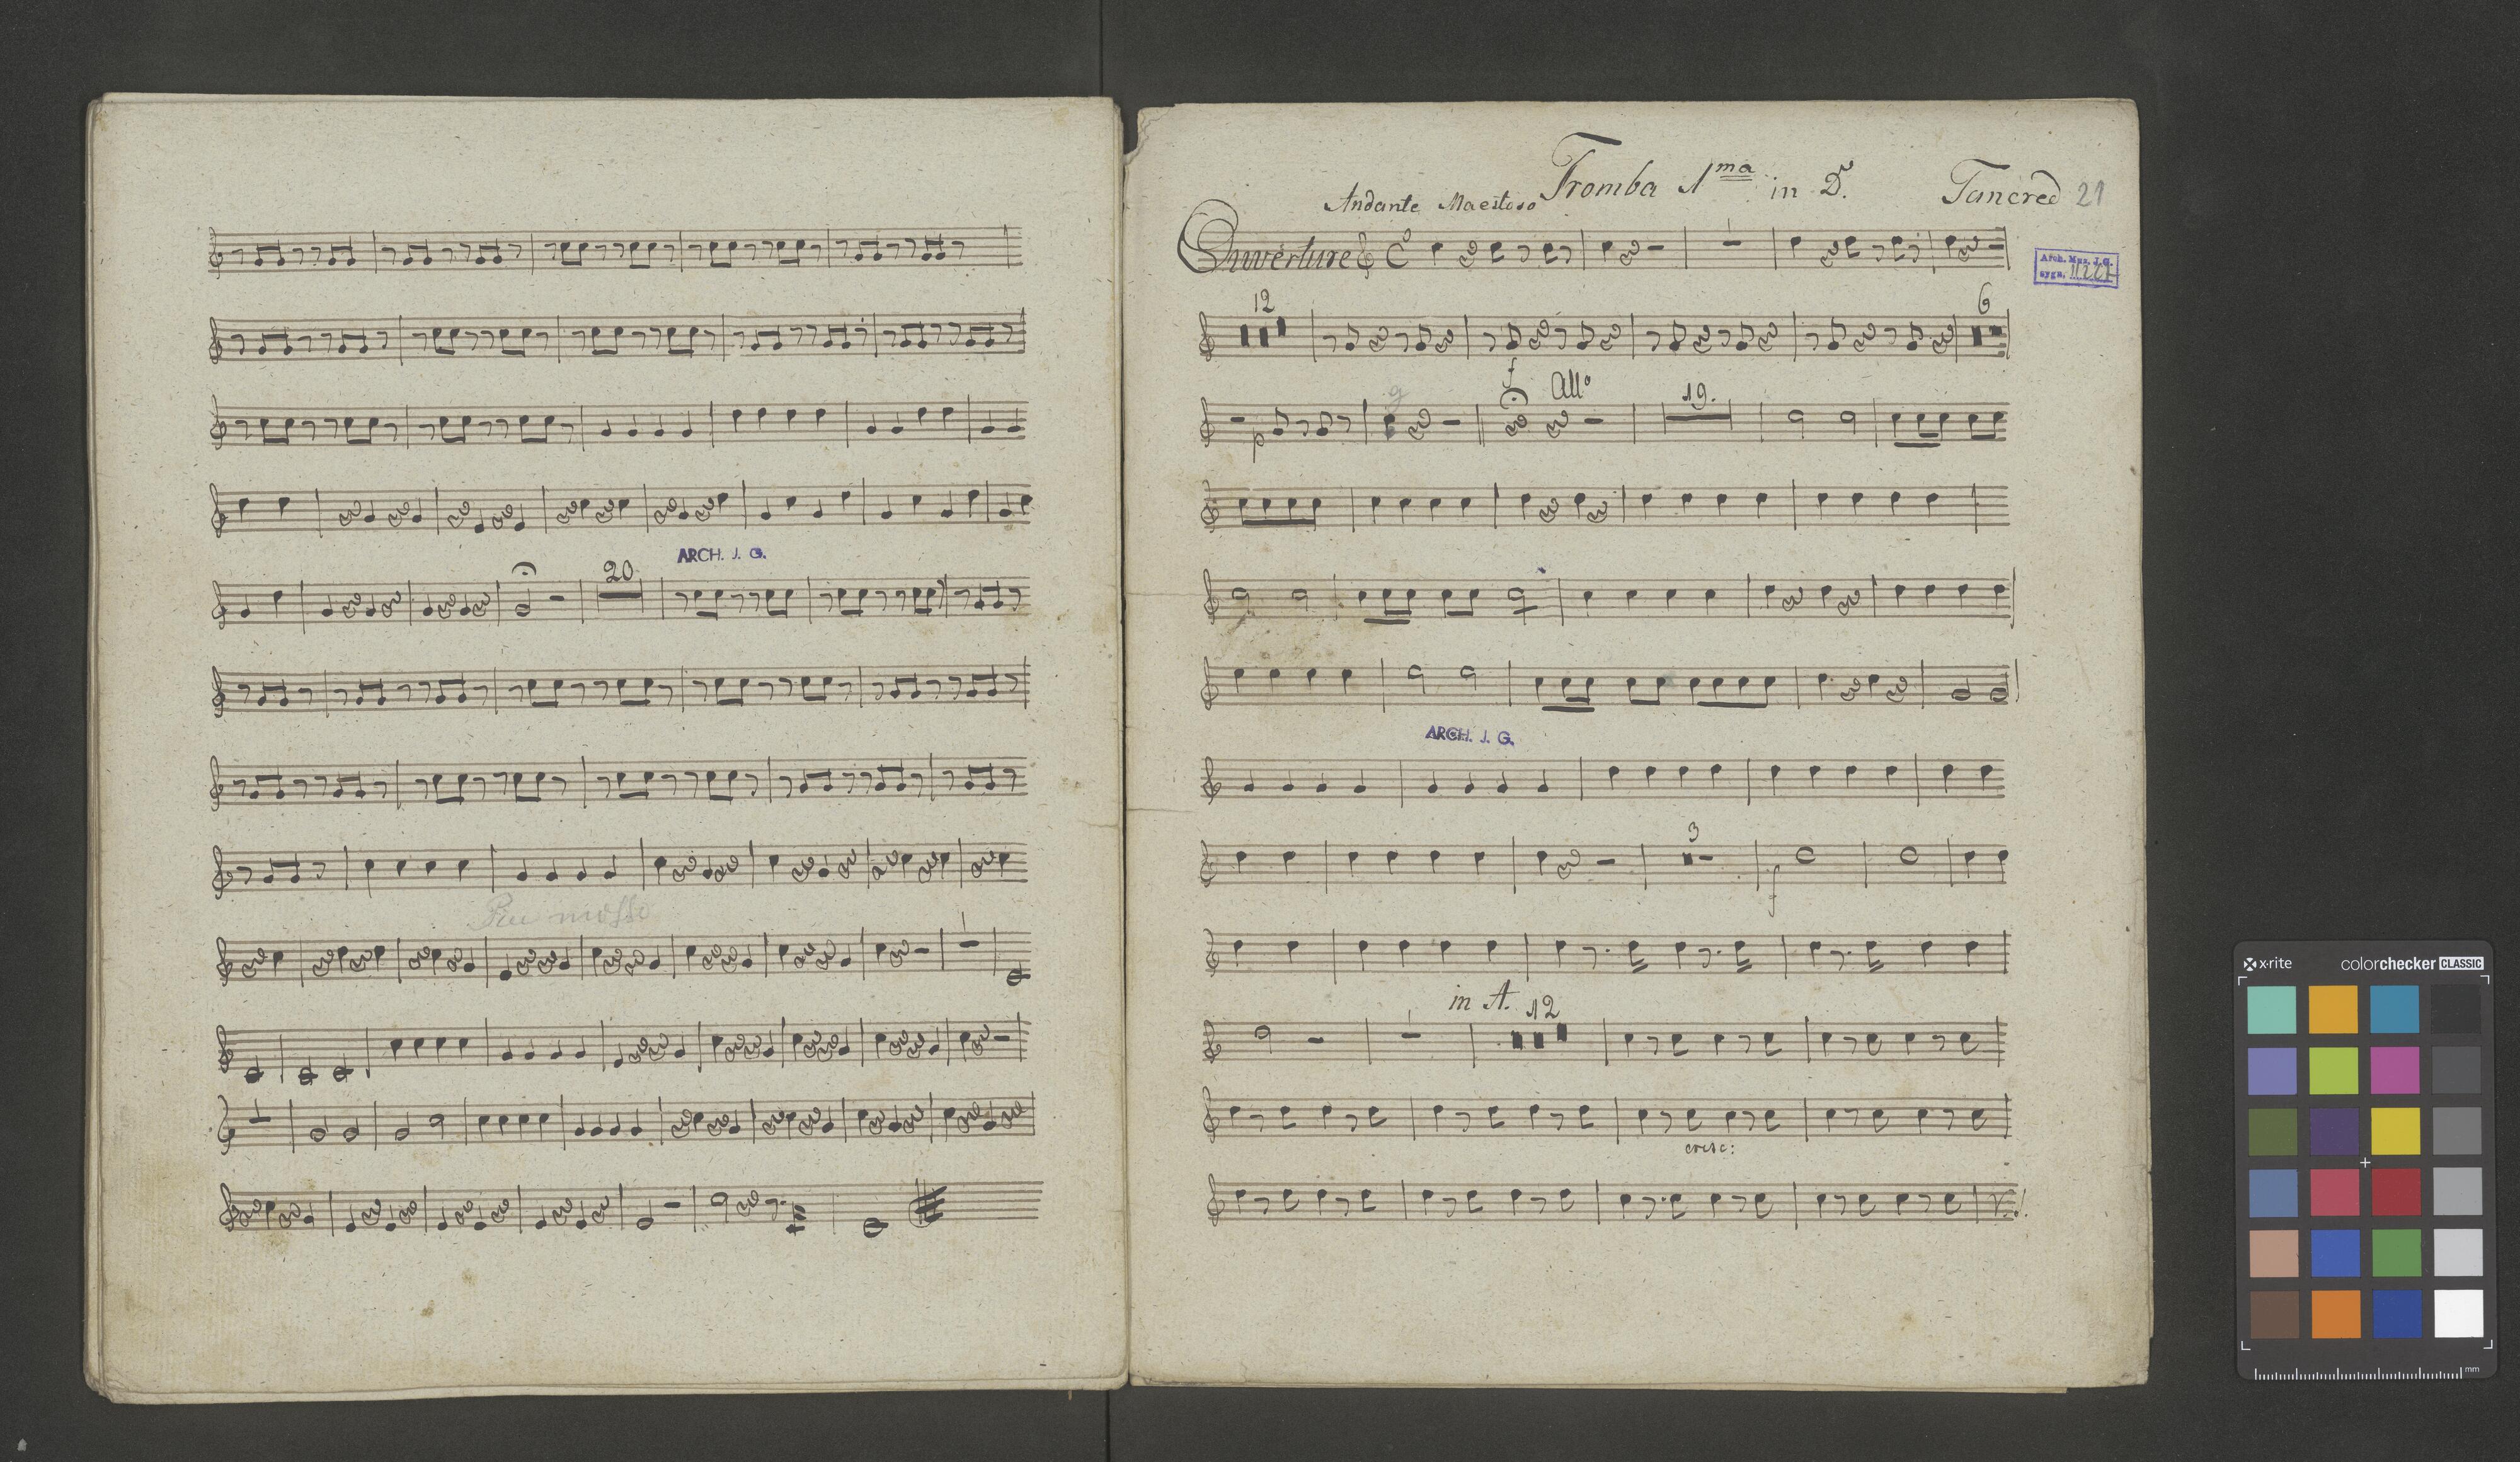 ARCH. J. G.
20
Piu mosso
Tromba 1ma in D.
Tancred 21
Andante Maestoso
Ouverture
Arch. Muz. J. G.
sygn.
12
6
f
All°
p
19.
ARCH. J. G.
3
f
in A. 12
cresc:
x-rite
colorchecker CLASSIC
mm